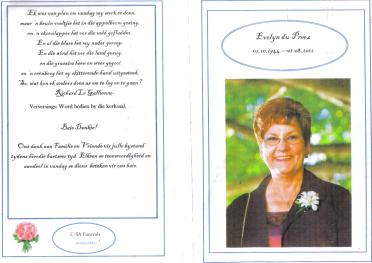 Ek was van plan om vandag my werk te doen,
maar 'n bruin voeltjie het in die appelboom gesing,
en 'n skoenlapper het oor die veld gefladder.
En al die blare het my nader geroep.
En die wind het oor die land gesug,
en die grassies heen en weer gegooi
en 'n reënboog het sy skitterende hand uitgesteek,
So, wat kon ek anders doen as om te lag en te gaan?
Richard Le Gallienne
Verversings: Word bedien by die kerksaal.
Baie Dankie!
Ons dank aan Familie en Vriende vir julle bystand
tydens hierdie hartseer tyd. Elkeen se teenwoordigheid en
aandeel in vandag se diens beteken vir ons baie.
© SA Funerals
Evelyn du Preez
01.10.1944